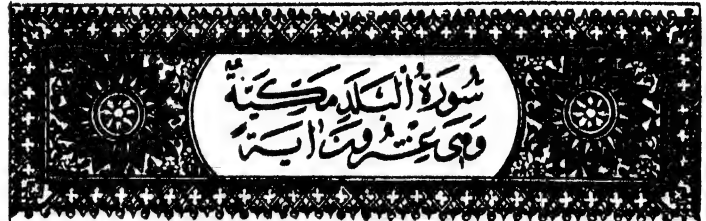 سُورَةُ الْبَلَدِ مَكِّيَّةٌ
وَهِيَ عِشْرُونَ اٰيَةً